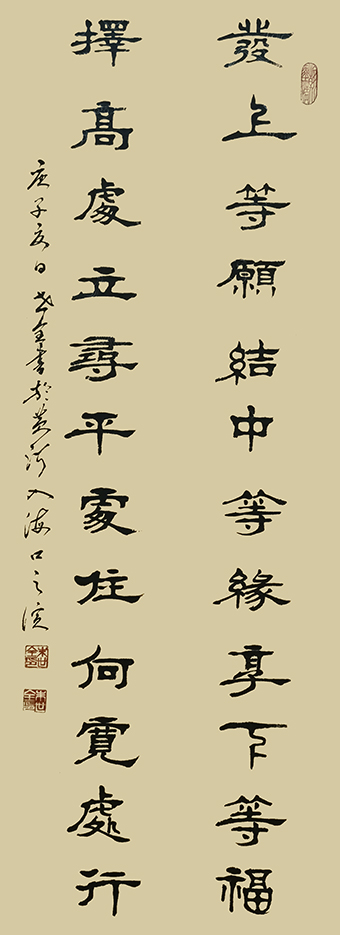 發上等願結中等緣享下等福
擇高處立尋平處住何寬處行
庚子夏日世全書於黃河入海口之濱